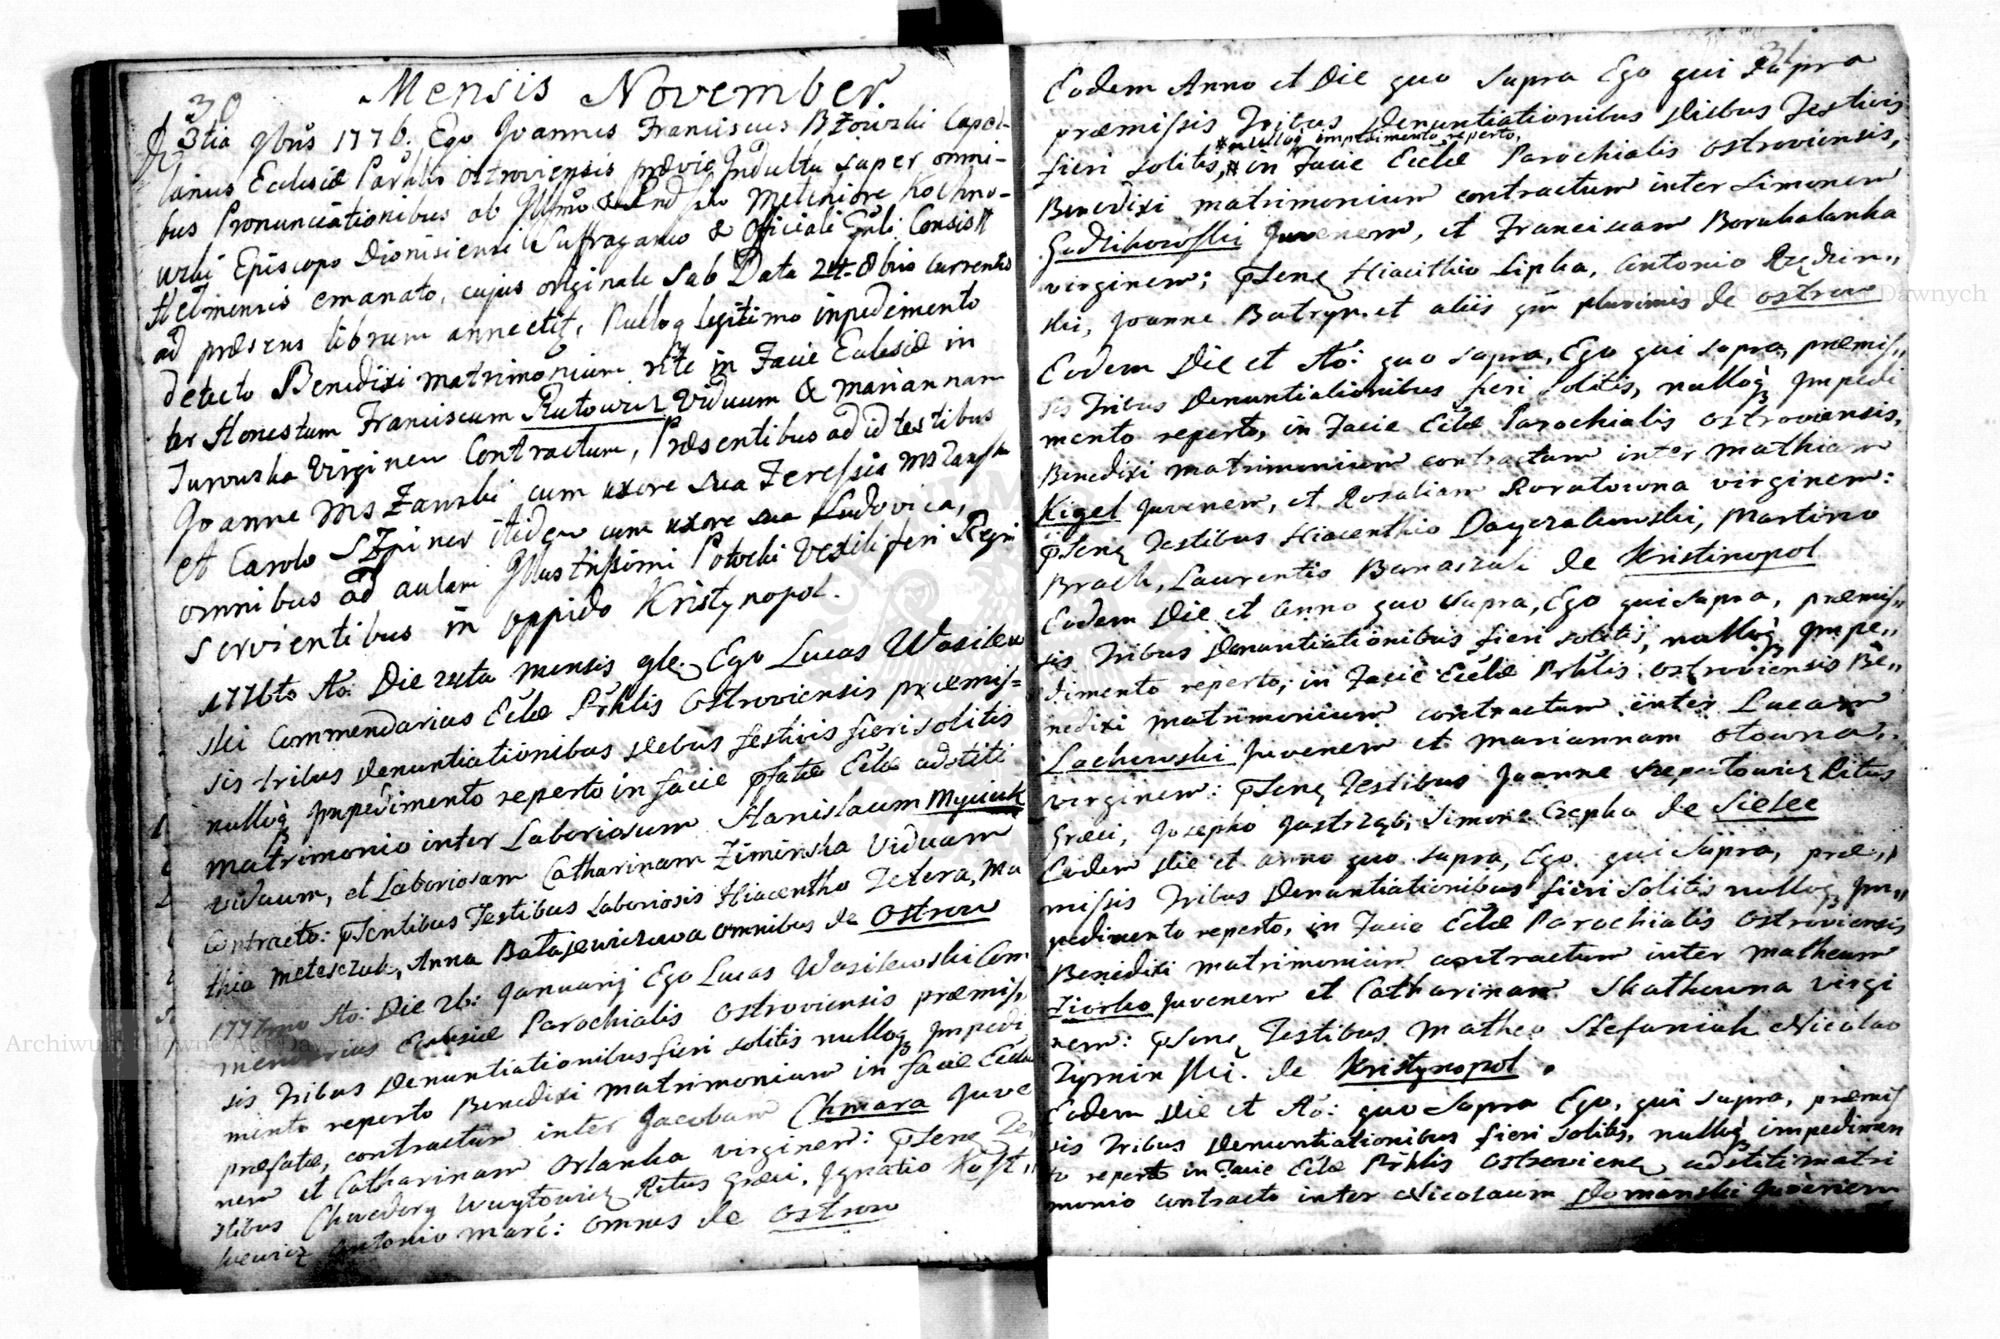 30
Mensis November.
3tia 9bris 1776. Ego Joannes Franciscus Bzowski Capel-
lanus Ecclesiæ Parhlis Ostroviensis prævio Indultu super omni-
bus Pronunciationibus ab Illmo & Rnd Melchiore Kochno-
wski Episcopo Dionisiensi Suffraganeo & Officiali Gnli Consist
Helmensis emanato, cujus originale Sub Data 24 8bris Currentis
ad præsens librum annectit, Nulloq legitimo inpedimento
detecto Benedixi matrimonium rite in Facie Eclesiæ in
ter Honestum Franciscum Rutowicz Viduum & Mariannam
Turouska Virginem Contractum, Præsentibus ad id testibus
Joanne Mszanski cum uxore sua Teressia Mszanska
et Carolo Szpiner itidem cum uxore sua Ludovica,
omnibus ad aulam Illustrissimi Potocki Vexiliferi Regni
Servientibus in oppido Kristynopol.
1776to Ao: Die 24ta mensis 9le Ego Lucas Wasilew
ski Commendarius Eclæ Prhlis Ostroviensis præmis=
sis tribus Denuntiationibus Diebus festivis fieri solitis
nulloq Impedimento reperto in facie pfatæ Eclæ adstiti
matrimonio inter Laboriosum Stanislaum Myciuk
viduum, et Laboriosam Catharinam Ziminska Viduam
Contracto: pSentibus Testibus Laboriosis Hiacentho Tetera, Ma
thia Meteszuk, Anna Batajewiczowa omnibus de Ostrow
1777mo Ao: Die 26: Januarij Ego Lucas Wasilewski Com
mendarius Eclesiæ Parochialis Ostroviensis præmis„
sis Tribus Denuntiationibus fieri solitis nulloq Impedi
mento reperto Benedixi matrimonium in facie Eclæ
præfatæ, contractum inter Jacobum Chmara Juve
nem et Catharinam Orlanka virginem: pSenq Te
stibus Chwedory Woytowicz Ritus Græci, Ignatio Kost„
kiewicz Antonio Marc: omnes de Ostrow
31
Eodem Anno et Die quo supra Ego qui supra
præmissis Tribus Denuntiationibus Diebus Festivis
*nulloq impedimento reperto,
fieri solitis,* in Facie Eclæ Parochialis Ostroviensis,
Benedixi matrimonium contractum inter Simonem
Gudzikowski Juvenem, et Franciscam Borukalanka
virginem; pSenq Hiacithio Lipka, Antonio
ski, Joanne Batryn et aliis qm plurimis de Ostrow
Eodem Die et Ao: quo supra, Ego qui supra, præmis„
sis Tribus Denuntiationibus fieri Solitis, nulloq Impedi
mento reperto, in Facie Eclæ Parochialis Ostroviensis,
Benedixi matrimonium contractum inter Mathiam
Kigel Juvenem, et Rosaliam Roratowna virginem:
pSenq Testibus Hiacenthio Dayczakowski, Martino
Brach, Laurentio Banaszak de Kristinopol
Eodem Die et Anno quo supra, Ego qui supra, præmis„
sis Tribus Denuntiationibus fieri solitis, nulloq Impe„
dimento reperto, in Facie Eclæ Prhlis Ostroviensis Be„
nedixi matrimonium contractum inter Lucam
Lachowski Juvenem et Mariannam Otowna,
virginem: pSenq Testibus Joanne Szeptowicz Ritus
Græci, Josepho Jastrząb, Simone Czepka de Sielec
Eodem Die et anno quo supra, Ego qui supra, præ„
missis Tribus Denuntiationibus fieri Solitis nulloq Im„
pedimento reperto, in Facie Eclæ Parochialis Ostroviensis
Benedixi matrimonium contractum inter Matheum
Ziorko Juvenem et Catharinam Skathowna virgi
nem: pSenq Testibus Matheo Stefaniak Nicolao
Tyminski. de Kristynopol.
Eodem Die et Ao: quo supra Ego, qui supra, præmis
sis Tribus Denuntiationibus fieri solitis, nulloq impedimen
to reperto in Facie Eclæ Prhlis Ostroviens adstiti matri
monio contracto inter Nicolaum Domanski Juvenem
Archiwum Główne Akt Dawnych
Archiwum Główne Akt Dawnych